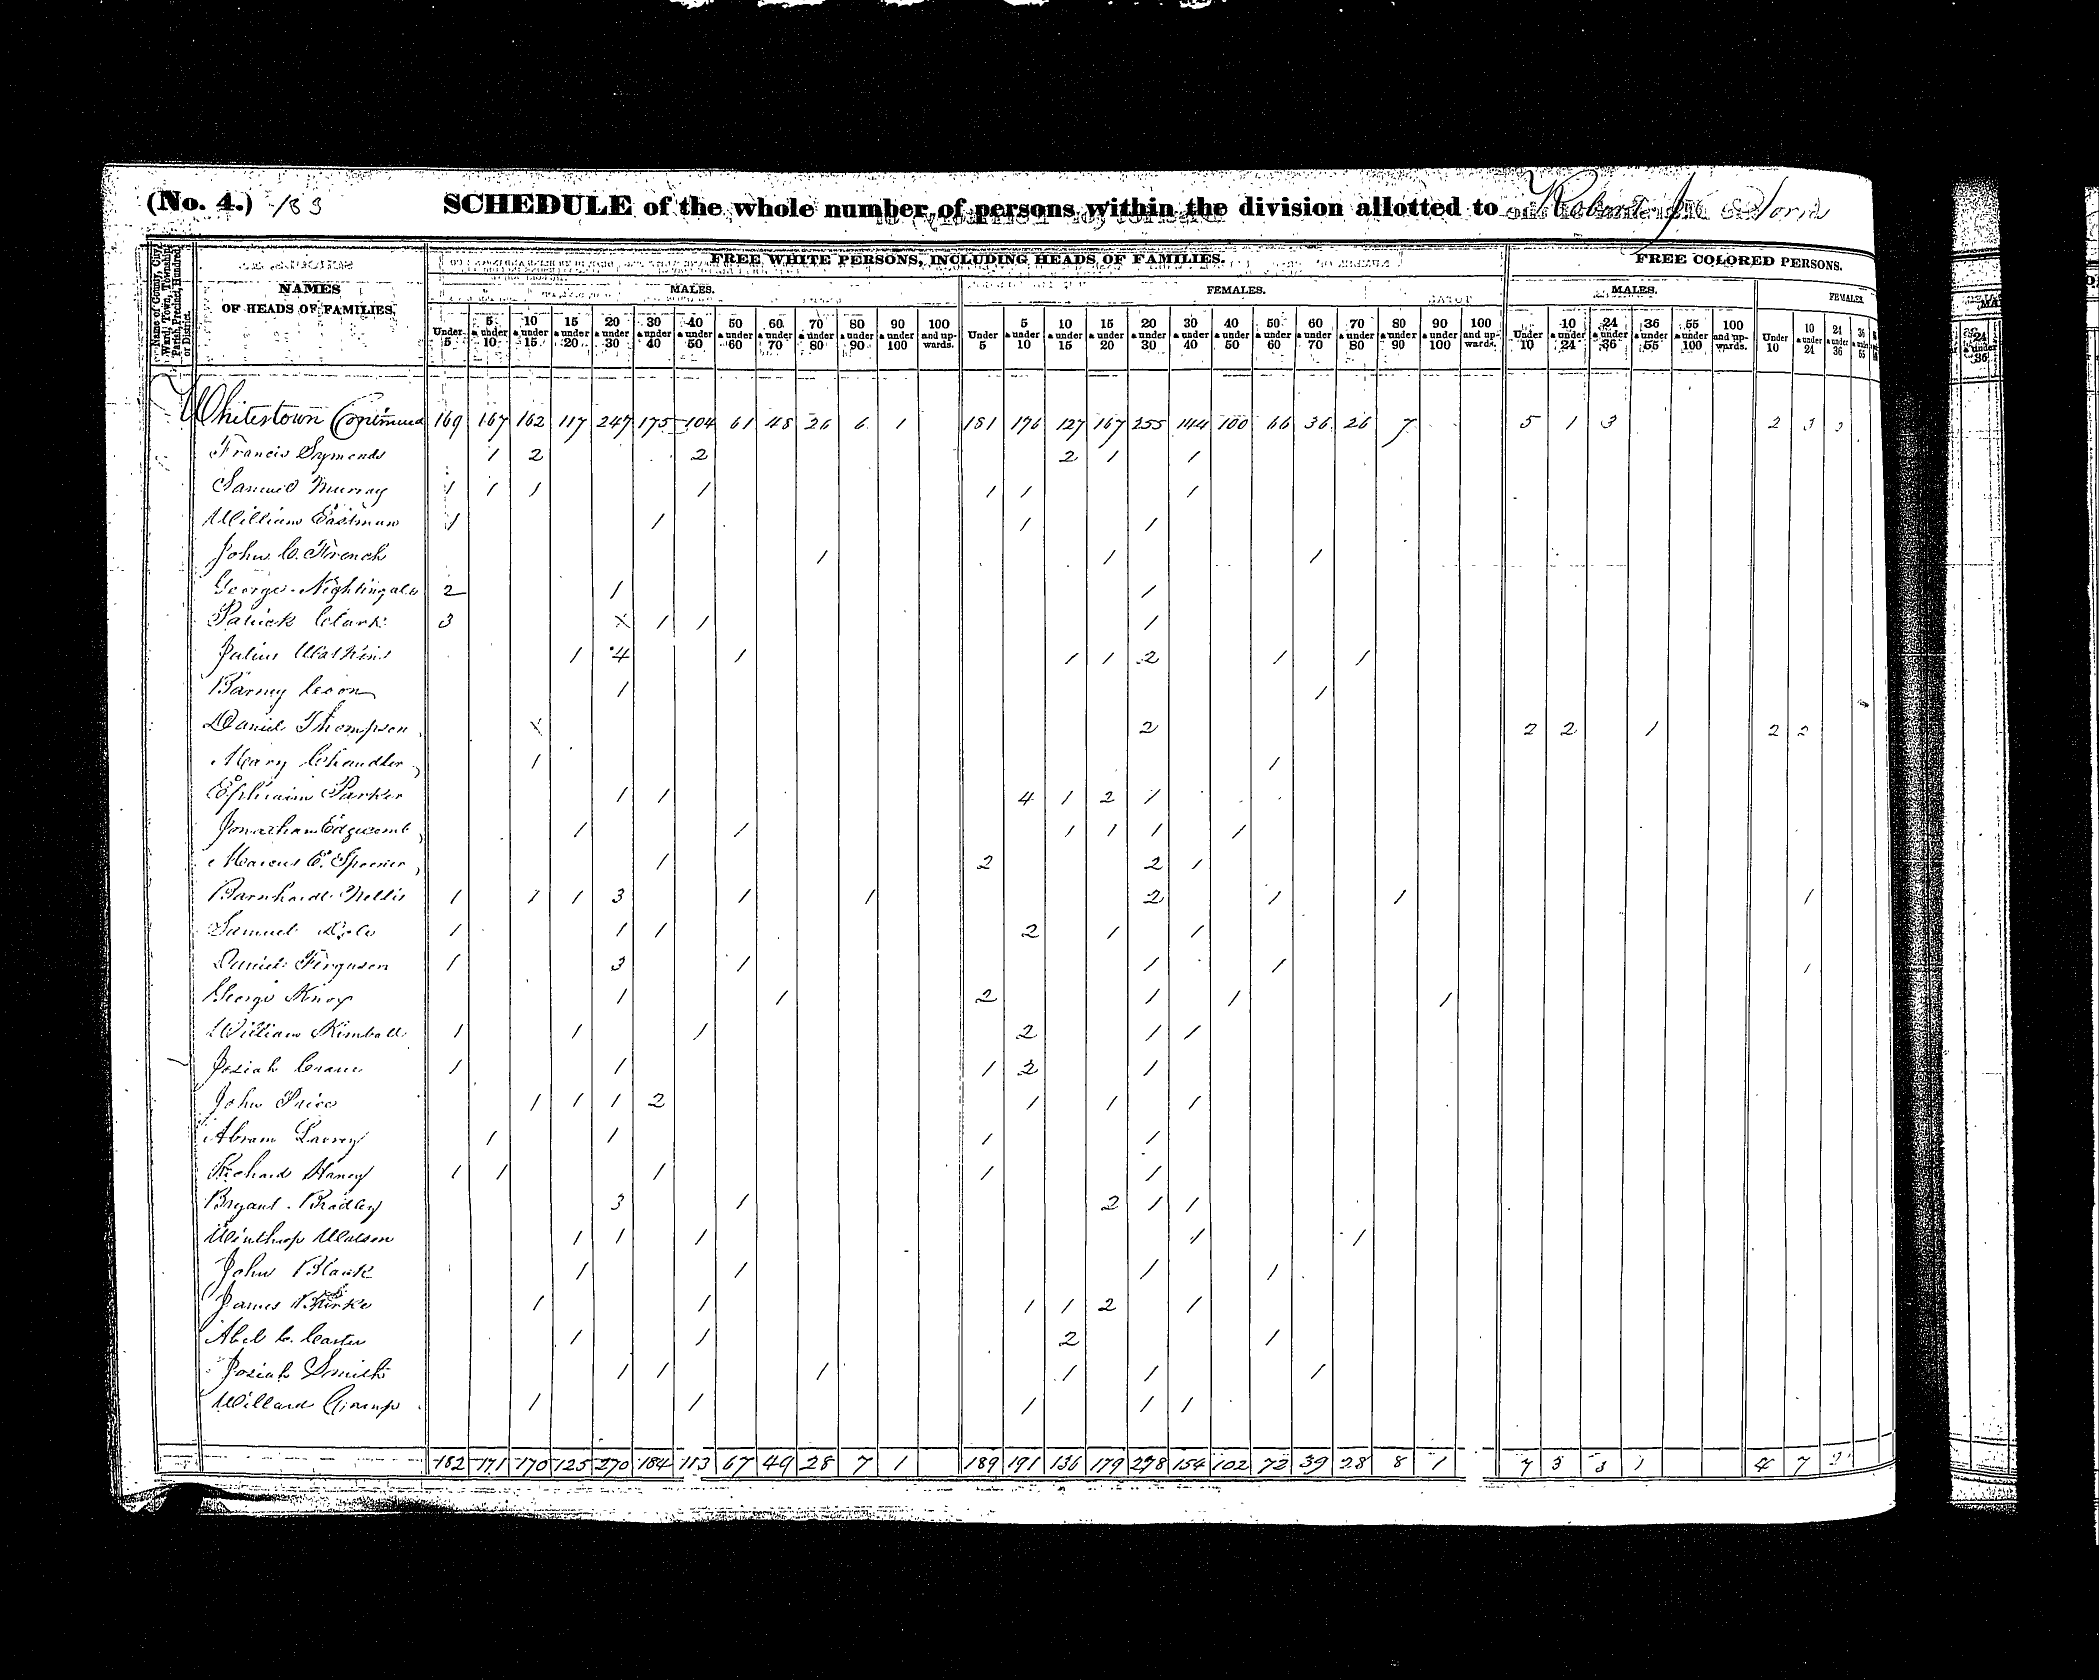 (No. 4.) 183 SCHEDULE of the whole number of persons within the division allotted to Robert
Name of County, City, Ward, Town, Township, Parish, Precinct, Hundred, or District.
NAMES OF HEADS OF FAMILIES.
FREE WHITE PERSONS, INCLUDING HEADS OF FAMILIES. FREE COLORED PERSONS.
MALES. FEMALES. MALES. FEMALES.
Under 5 5 & under 10 10 & under 15 15 & under 20 20 & under 30 30 & under 40 40 & under 50 50 & under 60 60 & under 70 70 & under 80 80 & under 90 90 & under 100 100 and upwards. Under 5 5 & under 10 10 & under 15 15 & under 20 20 & under 30 30 & under 40 40 & under 50 50 & under 60 60 & under 70 70 & under 80 80 & under 90 90 & under 100 100 and upwards. Under 10 10 & under 24 24 & under 36 36 & under 55 55 & under 100 100 and upwards. Under 10 10 & under 24 24 & under 36 36 & under 55
Whitestown Continued 169 167 162 117 247 175 104 61 48 26 6 1 181 176 127 167 255 144 100 66 36 26 7 5 1 3 2 3 3
Francis Symonds 1 2 2 2 1 1
Samuel Murray 1 1 1 1 1 1 1
William Eastman 1 1 1 1
John C. French 1 1 1
George Nightingale 2 1 1
Patrick Clark 3 x 1 1 1
Julius Watkins 1 4 1 1 1 2 1 1
Barney Coon 1 1
Daniel Thompson x 2 2 2 1 2 2
Mary Chandler 1 1
Ephraim Parker 1 1 4 1 2 1
Jonathan Edgecomb 1 1 1 1 1 1
Marcus E. Spencer 1 2 2 1
Barnhardt Nellis 1 1 1 3 1 1 2 1 1 1
Samuel 1 1 1 2 1 1
Daniel Ferguson 1 3 1 1 1 1
George Knox 1 1 2 1 1 1
William Kimball 1 1 1 2 1 1
Josiah Crane 1 1 1 2 1
John Price 1 1 1 2 1 1 1
Abram 1 1 1 1
Richard Haney 1 1 1 1 1
Bryant Bradley 3 1 2 1 1
Winthrop Watson 1 1 1 1 1
John Blank 1 1 1 1
James 1 1 1 1 2 1
Abel C. Carter 1 1 2 1
Josiah Smith 1 1 1 1 1 1
Willard 1 1 1 1 1
182 171 170 125 270 184 113 67 49 28 7 1 189 191 136 179 278 154 102 72 39 28 8 1 7 3 3 1 4 7 3